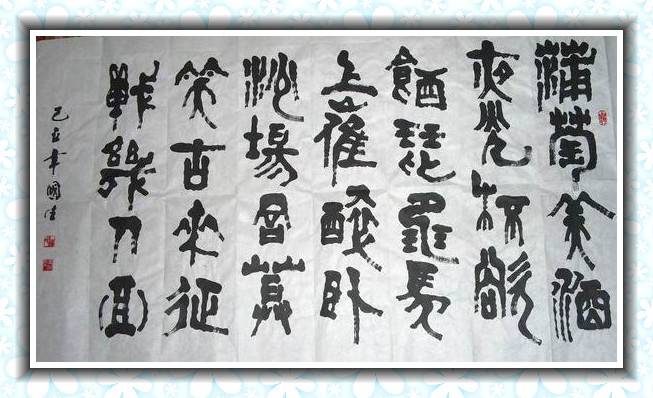 蒲萄美酒
夜光杯欲
飲琵琶馬
上催醉臥
沙場君莫
笑古來征
戰幾人回
己丑